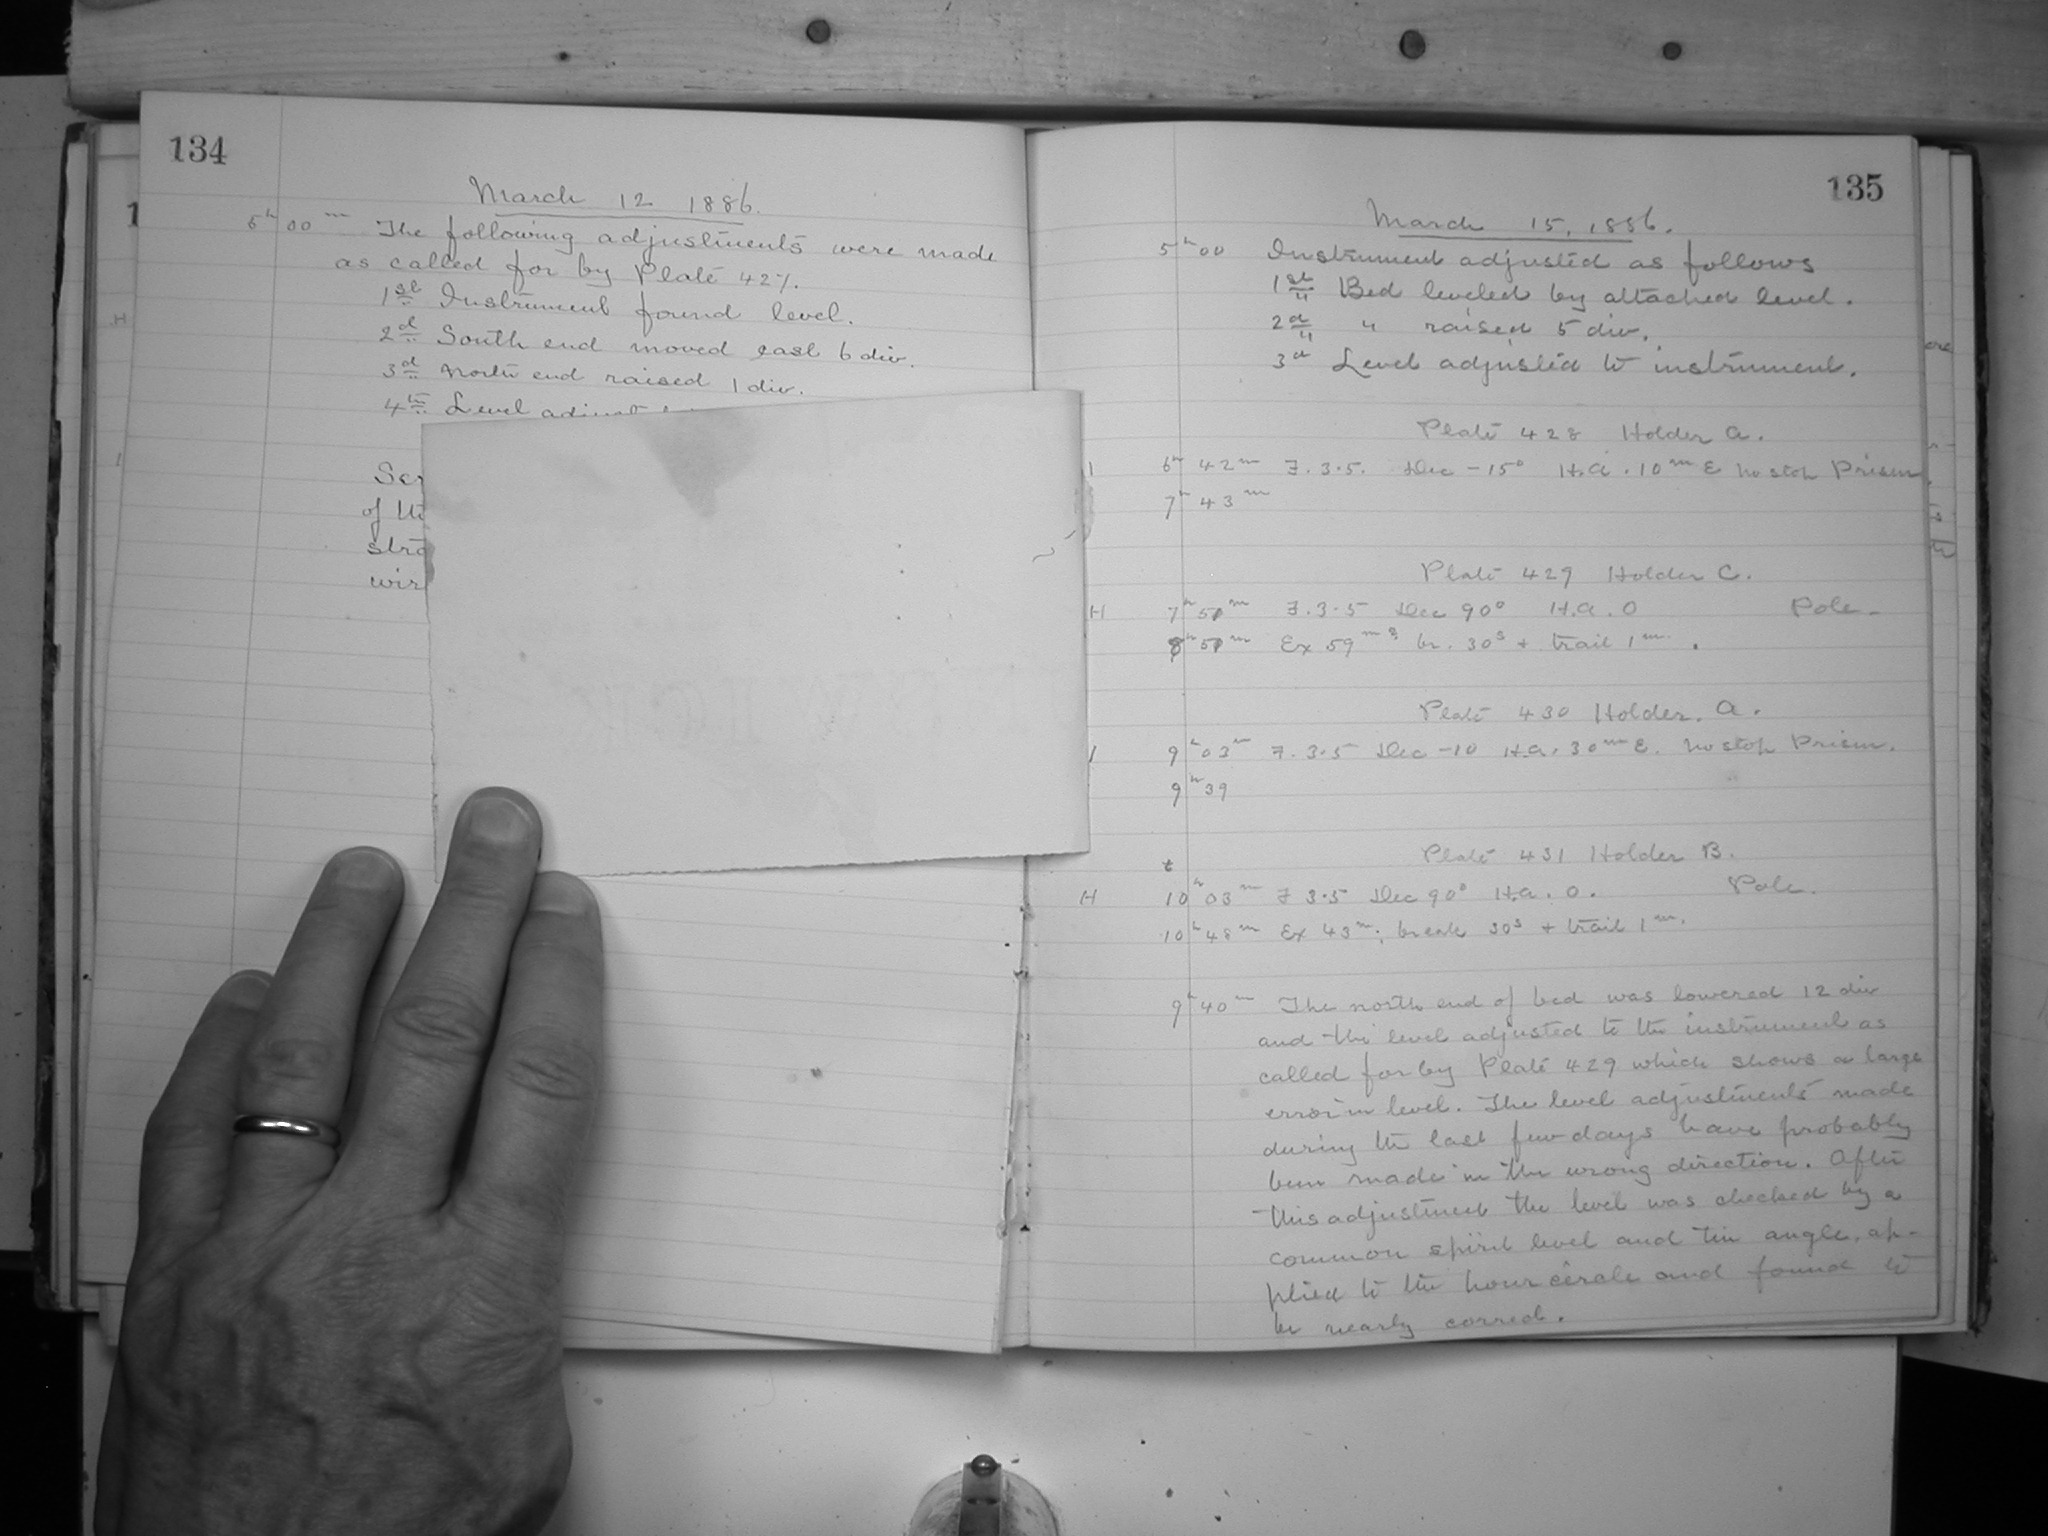 134
March 12 1886.
5h 00m The following adjustments were made
as called for by Plate 427.
1st Instrument found level.
2d South end moved east 6 div.
3d North end raised 1 div.
4th Level
of
135
March 15, 1886.
5h 00 Instrument adjusted as follows
1st Bed leveled by attached level.
2d " raised 5 div.
3d Level adjusted to instrument.
Plate 428 Holder A.
1 6h 42m F. 3.5. Dec -15° H.A. 10m E no stop Prism
7h 43m
Plate 429 Holder C.
H 7h 51m F. 3.5 Dec 90° H.A. 0 Pole.
8h 51m Ex 59m br. 30s + trail 1m.
Plate 430 Holder A.
1 9h 03m F. 3.5 Dec -10 H.A. 30m E. no stop Prism.
9h 39
Plate 431 Holder B.
t
H 10h 03m F 3.5 Dec 90° H.A. 0. Pole.
10h 48m Ex 43m; break 30s + trail 1m.
9h 40m The north end of bed was lowered 12 div
and the level adjusted to the instrument as
called for by Plate 429 which shows a large
error in level. The level adjustments made
during the last few days have probably
been made in the wrong direction. After
this adjustment the level was checked by a
common spirit level and tin angle, ap-
plied to the hour circle and found to
be nearly correct.